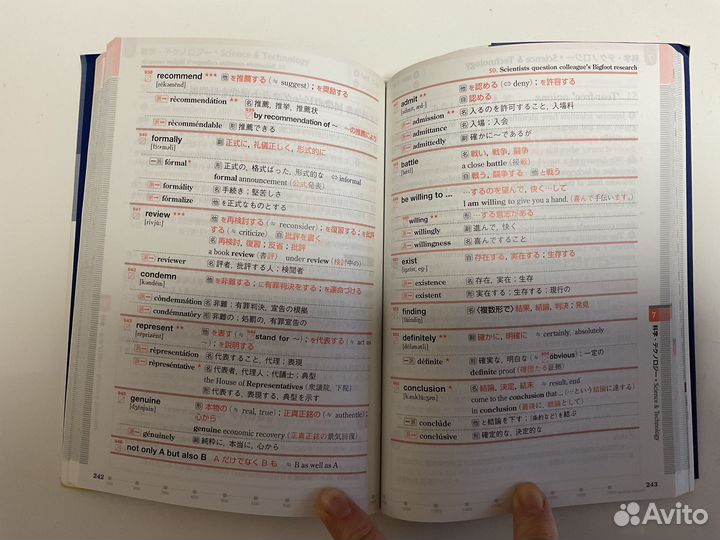 科学・テクノロジー • Science & Technology
recommend *** 他 を推薦する (≒ suggest); を奨励する
[rèkəménd]
派━ rècommendátion 名 推薦, 推挙, 推薦状
by recommendation of 〜 〜の推薦により
派━ recomméndable 形 推薦できる
940
formally 副 正式に, 礼儀正しく, 形式的に
派━ fórmal * 形 正式の, 格ばった, 形式的な ⇔ informal
formal announcement (公式発表)
派━ formálity 名 手続き; 堅苦しさ
派━ fórmalize 他 を正式なものとする
941
review *** 他 を再検討する (≒ reconsider); を復習する; を批評する (≒ criticize) 自 批評を書く
名 再検討, 復習; 反省; 批評
a book review (書評) under review (検討中の)
派━ reviewer 名 評者, 批評する人; 検閲者
942
condemn 他 を非難する; に有罪判決をする; を運命づける
[kəndém]
派━ còndemnátion 名 非難; 有罪判決, 宣告の根拠
派━ condémnatòry 形 非難の; 処罰の, 有罪宣告の
943
represent *** 他 を表す (≒ stand for 〜); を代表する (≒ act as 〜); を説明する
[rèprizént]
派━ rèpresentátion 名 代表すること, 代理; 表現
派━ rèpreséntative * 名 代表者, 代理人; 代議士; 典型
the House of Representatives (衆議院, 下院)
形 代表する, 表現する, 典型を示す
genuine 形 本物の (≒ real, true); 正真正銘の (≒ authentic); 心から
genuine economic recovery (正真正銘の景気回復)
派━ génuinely 副 純粋に, 本当に, 心から
946
not only A but also B A だけでなく B も ≒ B as well as A
242
科学・テクノロジー • Science & Technology
50. Scientists question colleague's Bigfoot research
admit *** 他 を認める (⇔ deny); を許容する
自 認める
派━ admission ** 名 入るのを許可すること, 入場料
派━ admittance 名 入場; 入会
派━ admittedly 副 確かに〜であるが
battle 名 戦い, 戦争, 闘争
a close battle (接戦)
自 戦う, 闘争する 他 と戦う
be willing to … …するのを望んで, 快く…して
I am willing to give you a hand. (喜んで手伝います。)
willing ** 形 …する意志がある
派━ willingly 副 進んで, 快く
派━ willingness 名 喜んですること
exist 自 存在する, 実在する; 生存する
派━ existence 名 存在, 実在; 生存
派━ existent 形 実在する; 生存する; 現行の
finding 名 〈複数形で〉結果, 結論, 判決; 発見
definitely ** 副 確かに, 明確に ≒ certainly, absolutely
派━ définite * 形 確実な, 明白な (≒ óbvious); 一定の
definite proof (確固たる証拠)
conclusion * 名 結論, 決定, 結末 ≒ result, end
come to the conclusion that … (…という結論に達する)
in conclusion (最後に, 結論として)
派━ conclúde * 他 と結論を下す; (条約など)を結ぶ
派━ conclúsive 形 確定的な, 決定的な
7
科学・テクノロジー • Science & Technology
243
Avito